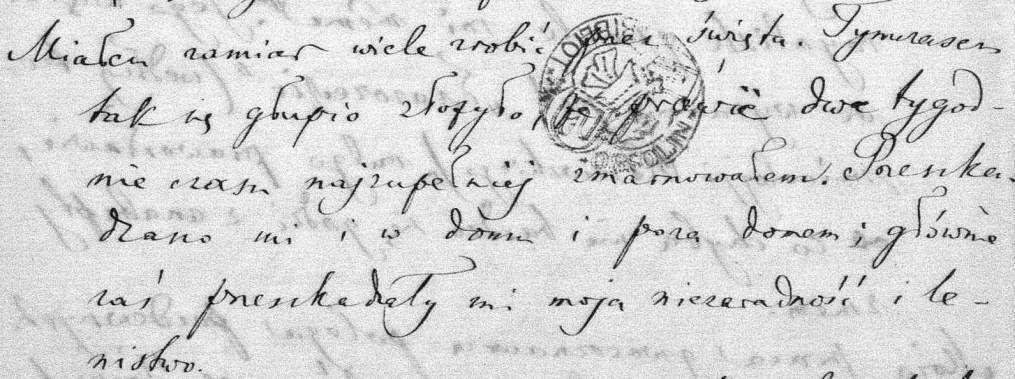 Miałem zamiar wiele zrobić przez święta. Tymczasem
tak się głupio złożyło, że prawie dwa tygod-
nie czasu najzupełniej zmarnowałem. Przeszka-
dzano mi i w domu i poza domem; głównie
zaś przeszkadzały mi moja niezaradność i le-
nistwo.